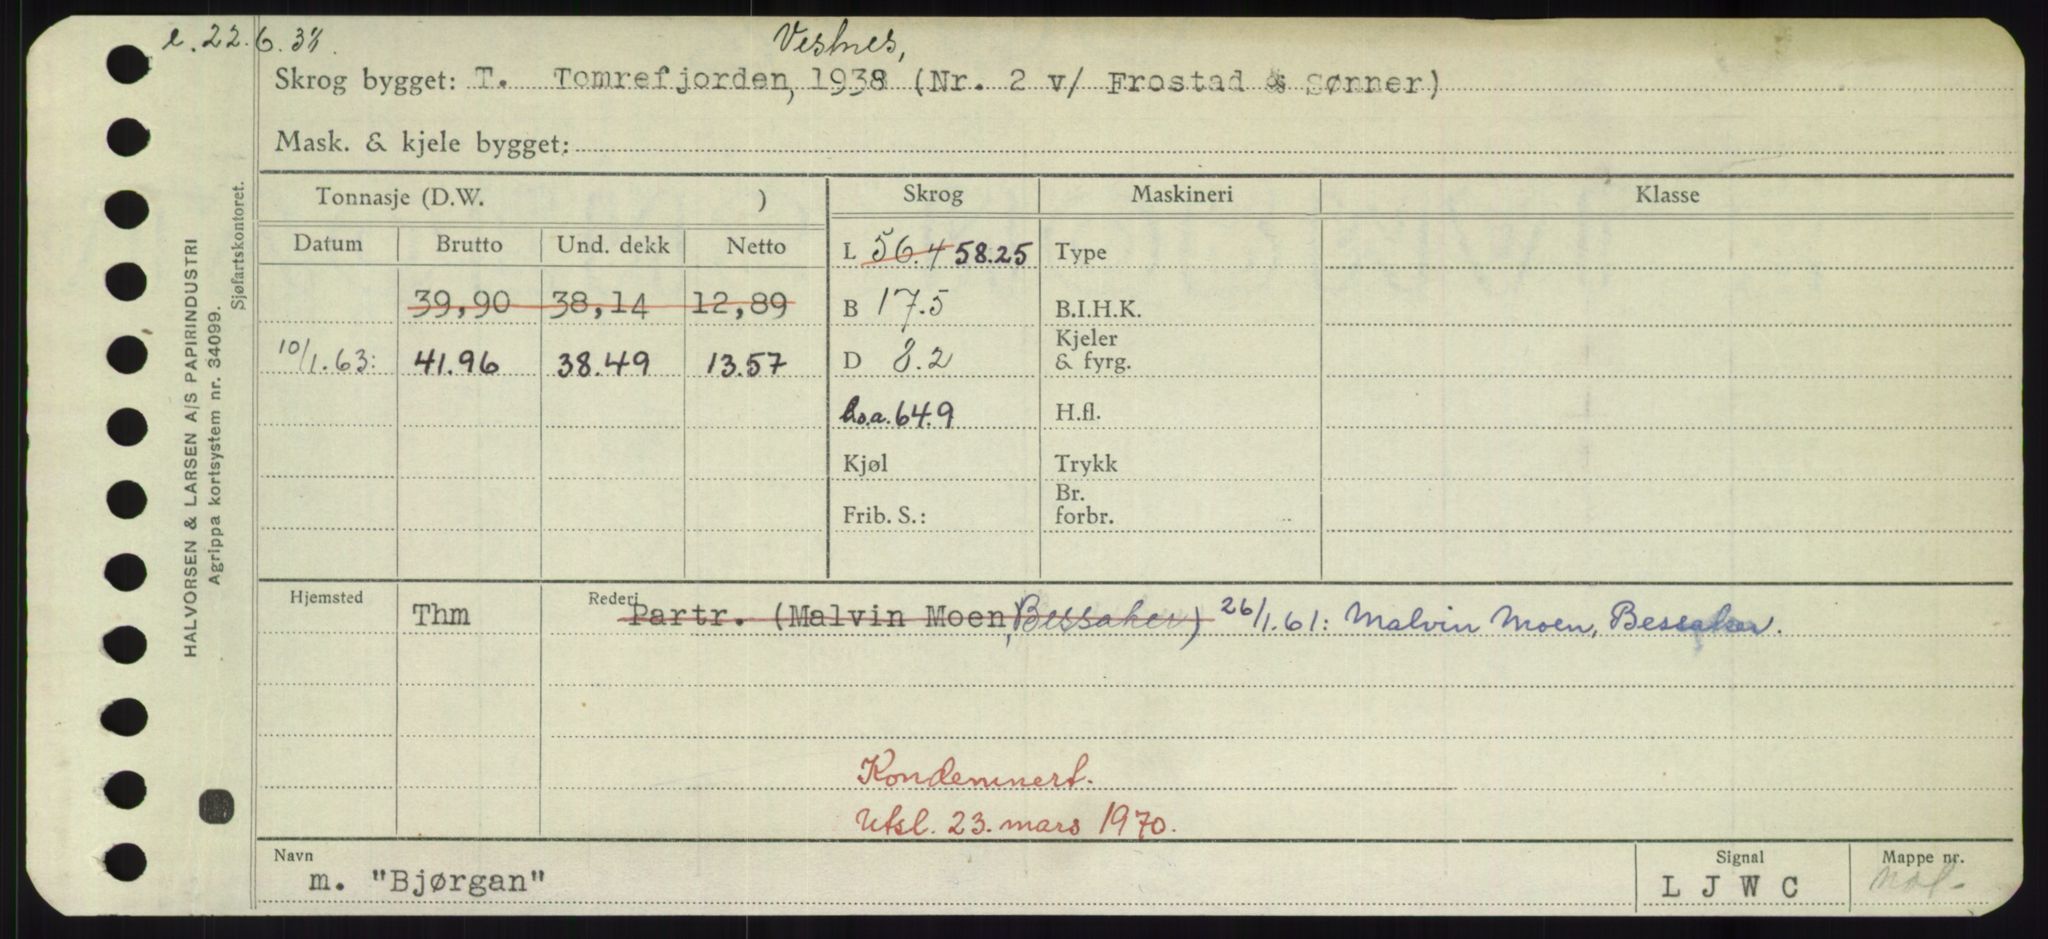 e. 22.6.38. Vestnes,
Skrog bygget: T. Tomrefjorden, 1938 (Nr. 2 v/ Frostad & Sønner)
Mask. & kjele bygget:
HALVORSEN & LARSEN A/S PAPIRINDUSTRI
Agrippa kortsystem nr. 34099.
Sjøfartskontoret.
Tonnasje (D.W. ) Skrog Maskineri Klasse
Datum Brutto Und. dekk Netto L 56.4 58.25 Type
39,90 38,14 12,89 B 17.5 B.I.H.K.
10/1.63: 41.96 38.49 13.57 D 8.2 Kjeler & fyrg.
h.o.a. 64.9 H.fl.
Kjøl Trykk
Frib. S.: Br. forbr.
Hjemsted Thm Rederi Partr. (Malvin Moen, Bessaker) 26/1.61: Malvin Moen, Bessaker.
Kondemnert.
Utsl. 23. mars 1970.
Navn Signal Mappe nr.
m. "Bjørgan" L J W C